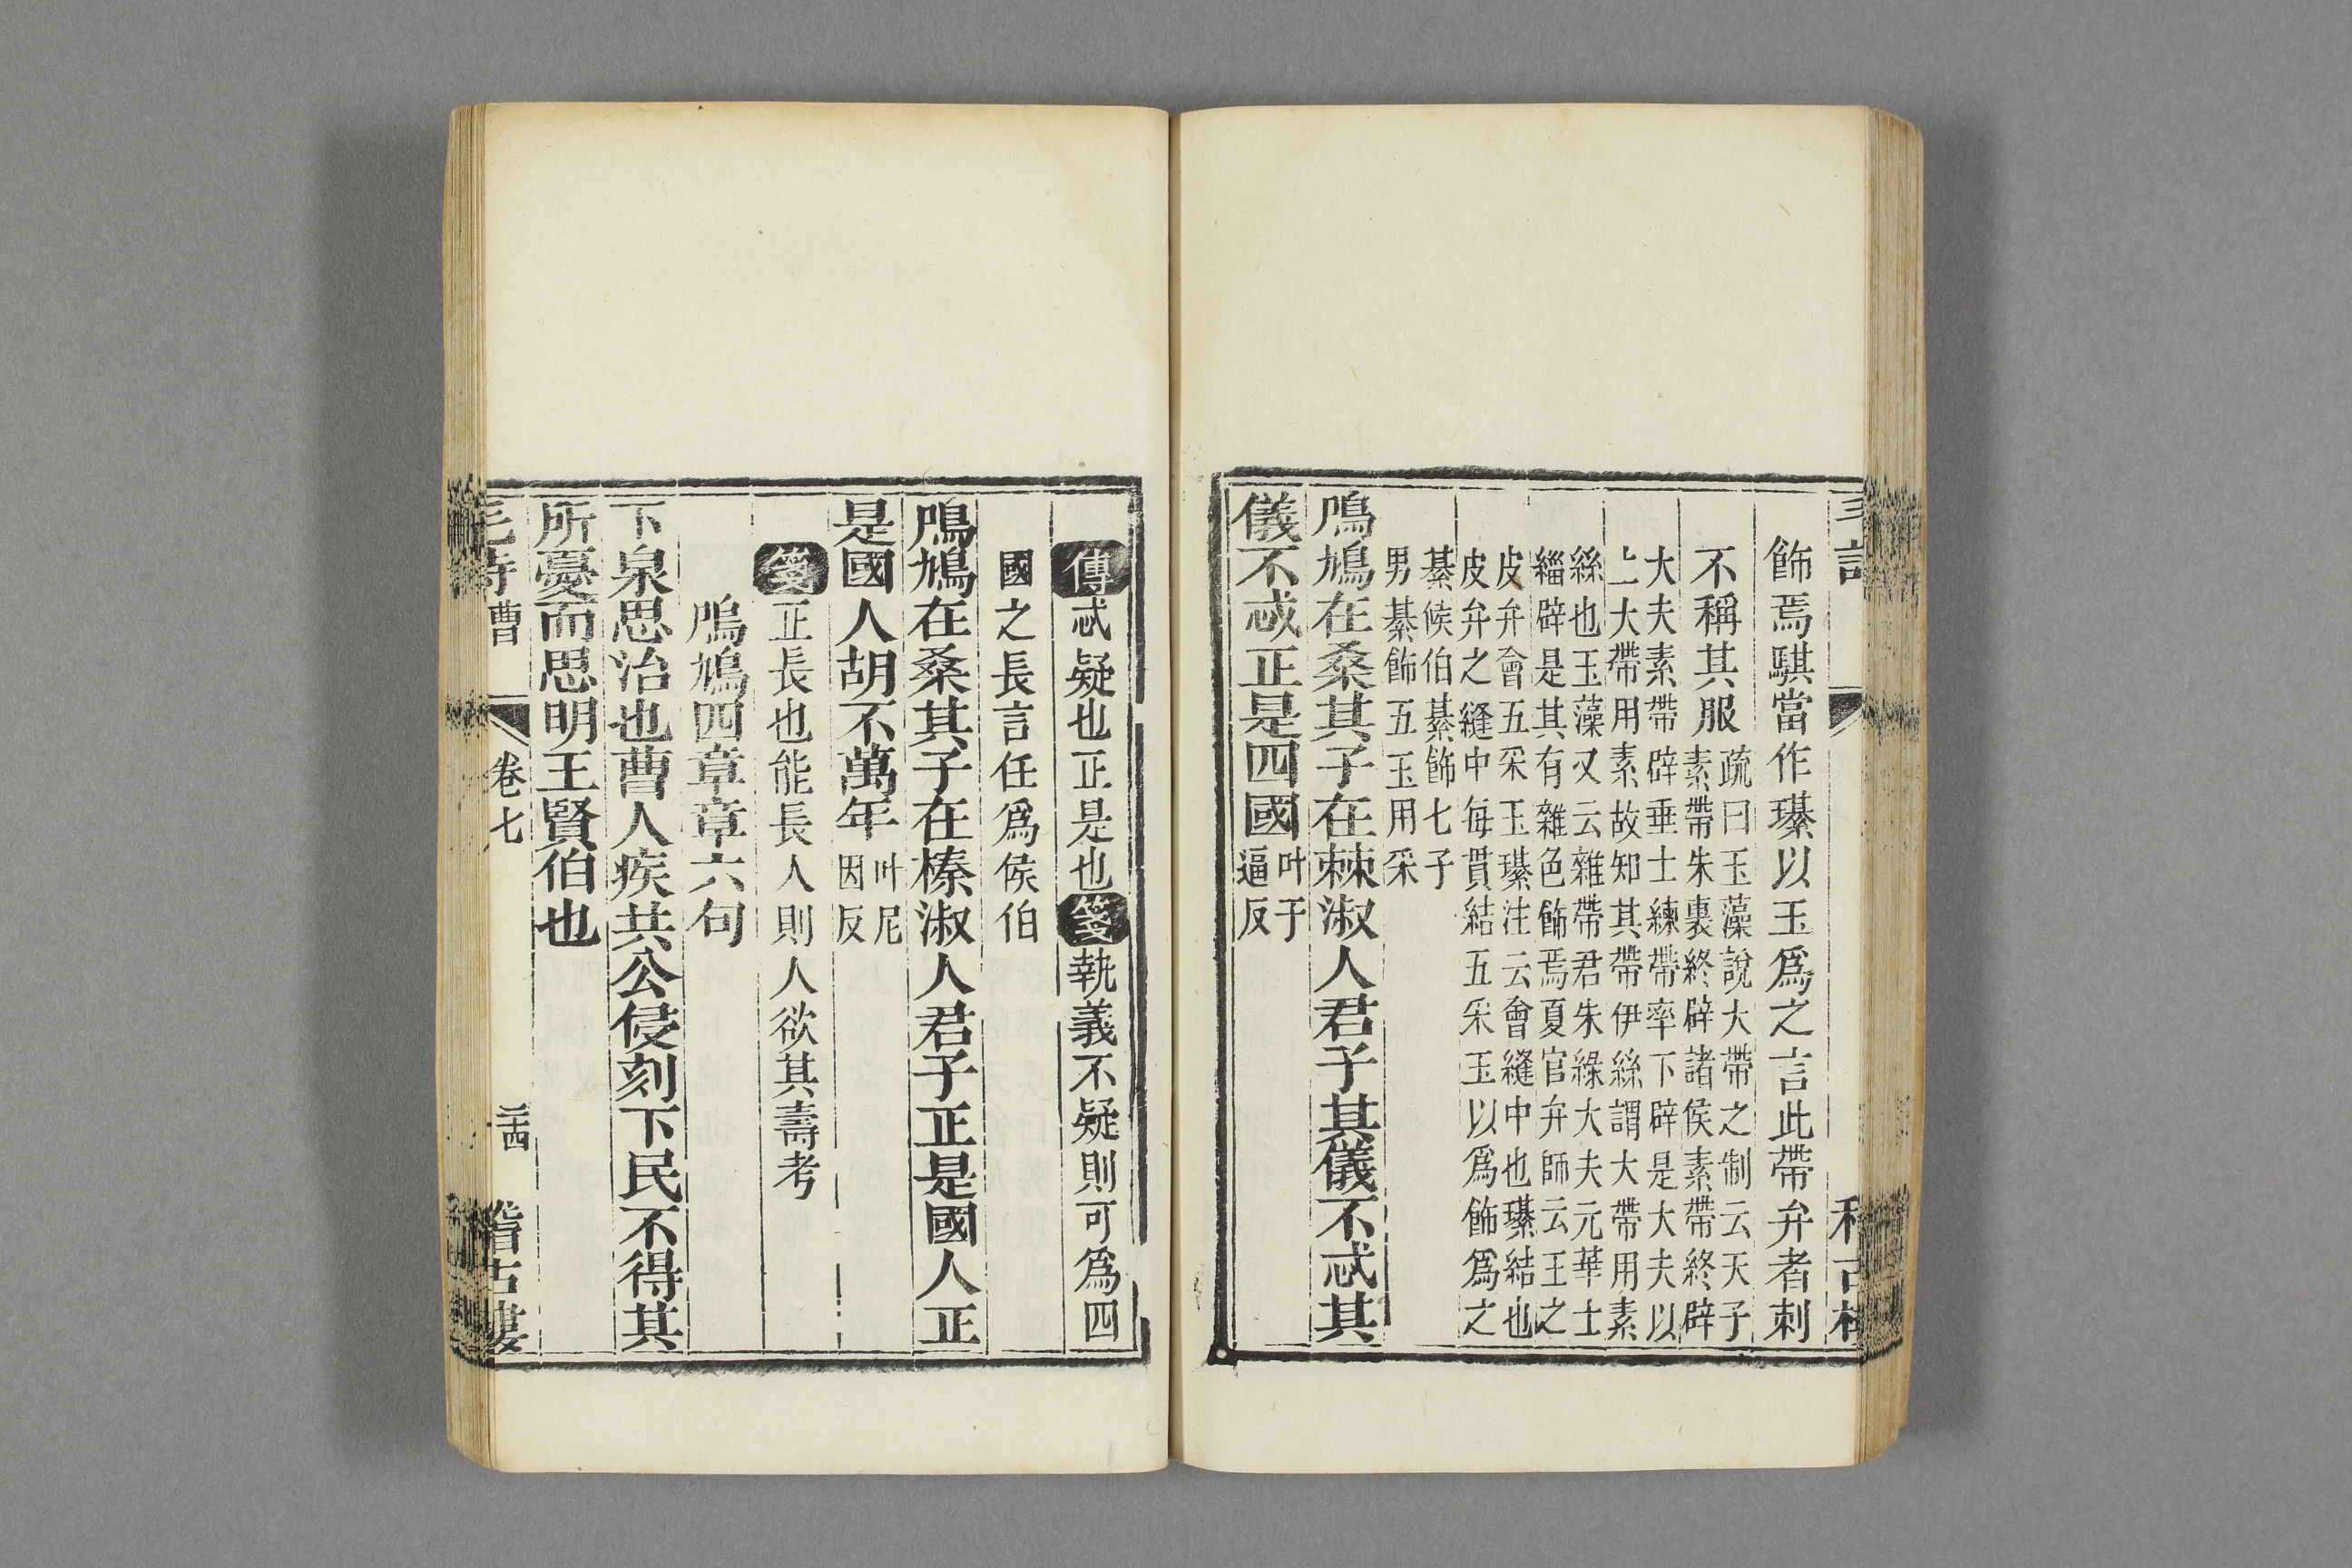 飾焉騏當作璂以玉爲之言此帶弁者刺
不稱其服
疏曰玉藻說大帶之制云天子
素帶朱裏終辟諸侯素帶終辟
大夫素帶辟垂士練帶率下辟是大夫以
上大帶用素故知其帶伊絲謂大帶用素
絲也玉藻又云雜帶君朱綠大夫元華士
緇辟是其有雜色飾焉夏官弁師云王之
皮弁會五采玉璂注云會縫中也璂結也
皮弁之縫中每貫結五采玉以爲飾爲之
綦候伯綦飾七子
男綦飾五玉用采
鳲鳩在桑其子在棘淑人君子其儀不忒其
儀不忒正是四國
叶于
逼反
傳忒疑也正是也箋執義不疑則可爲四
國之長言任爲侯伯
鳲鳩在桑其子在榛淑人君子正是國人正
是國人胡不萬年
叶尼
因反
箋正長也能長人則人欲其壽考
鳲鳩四章章六句
下泉思治也曹人疾共公侵刻下民不得其
所憂而思明王賢伯也
毛詩 曹 卷七 二十四 稽古樓